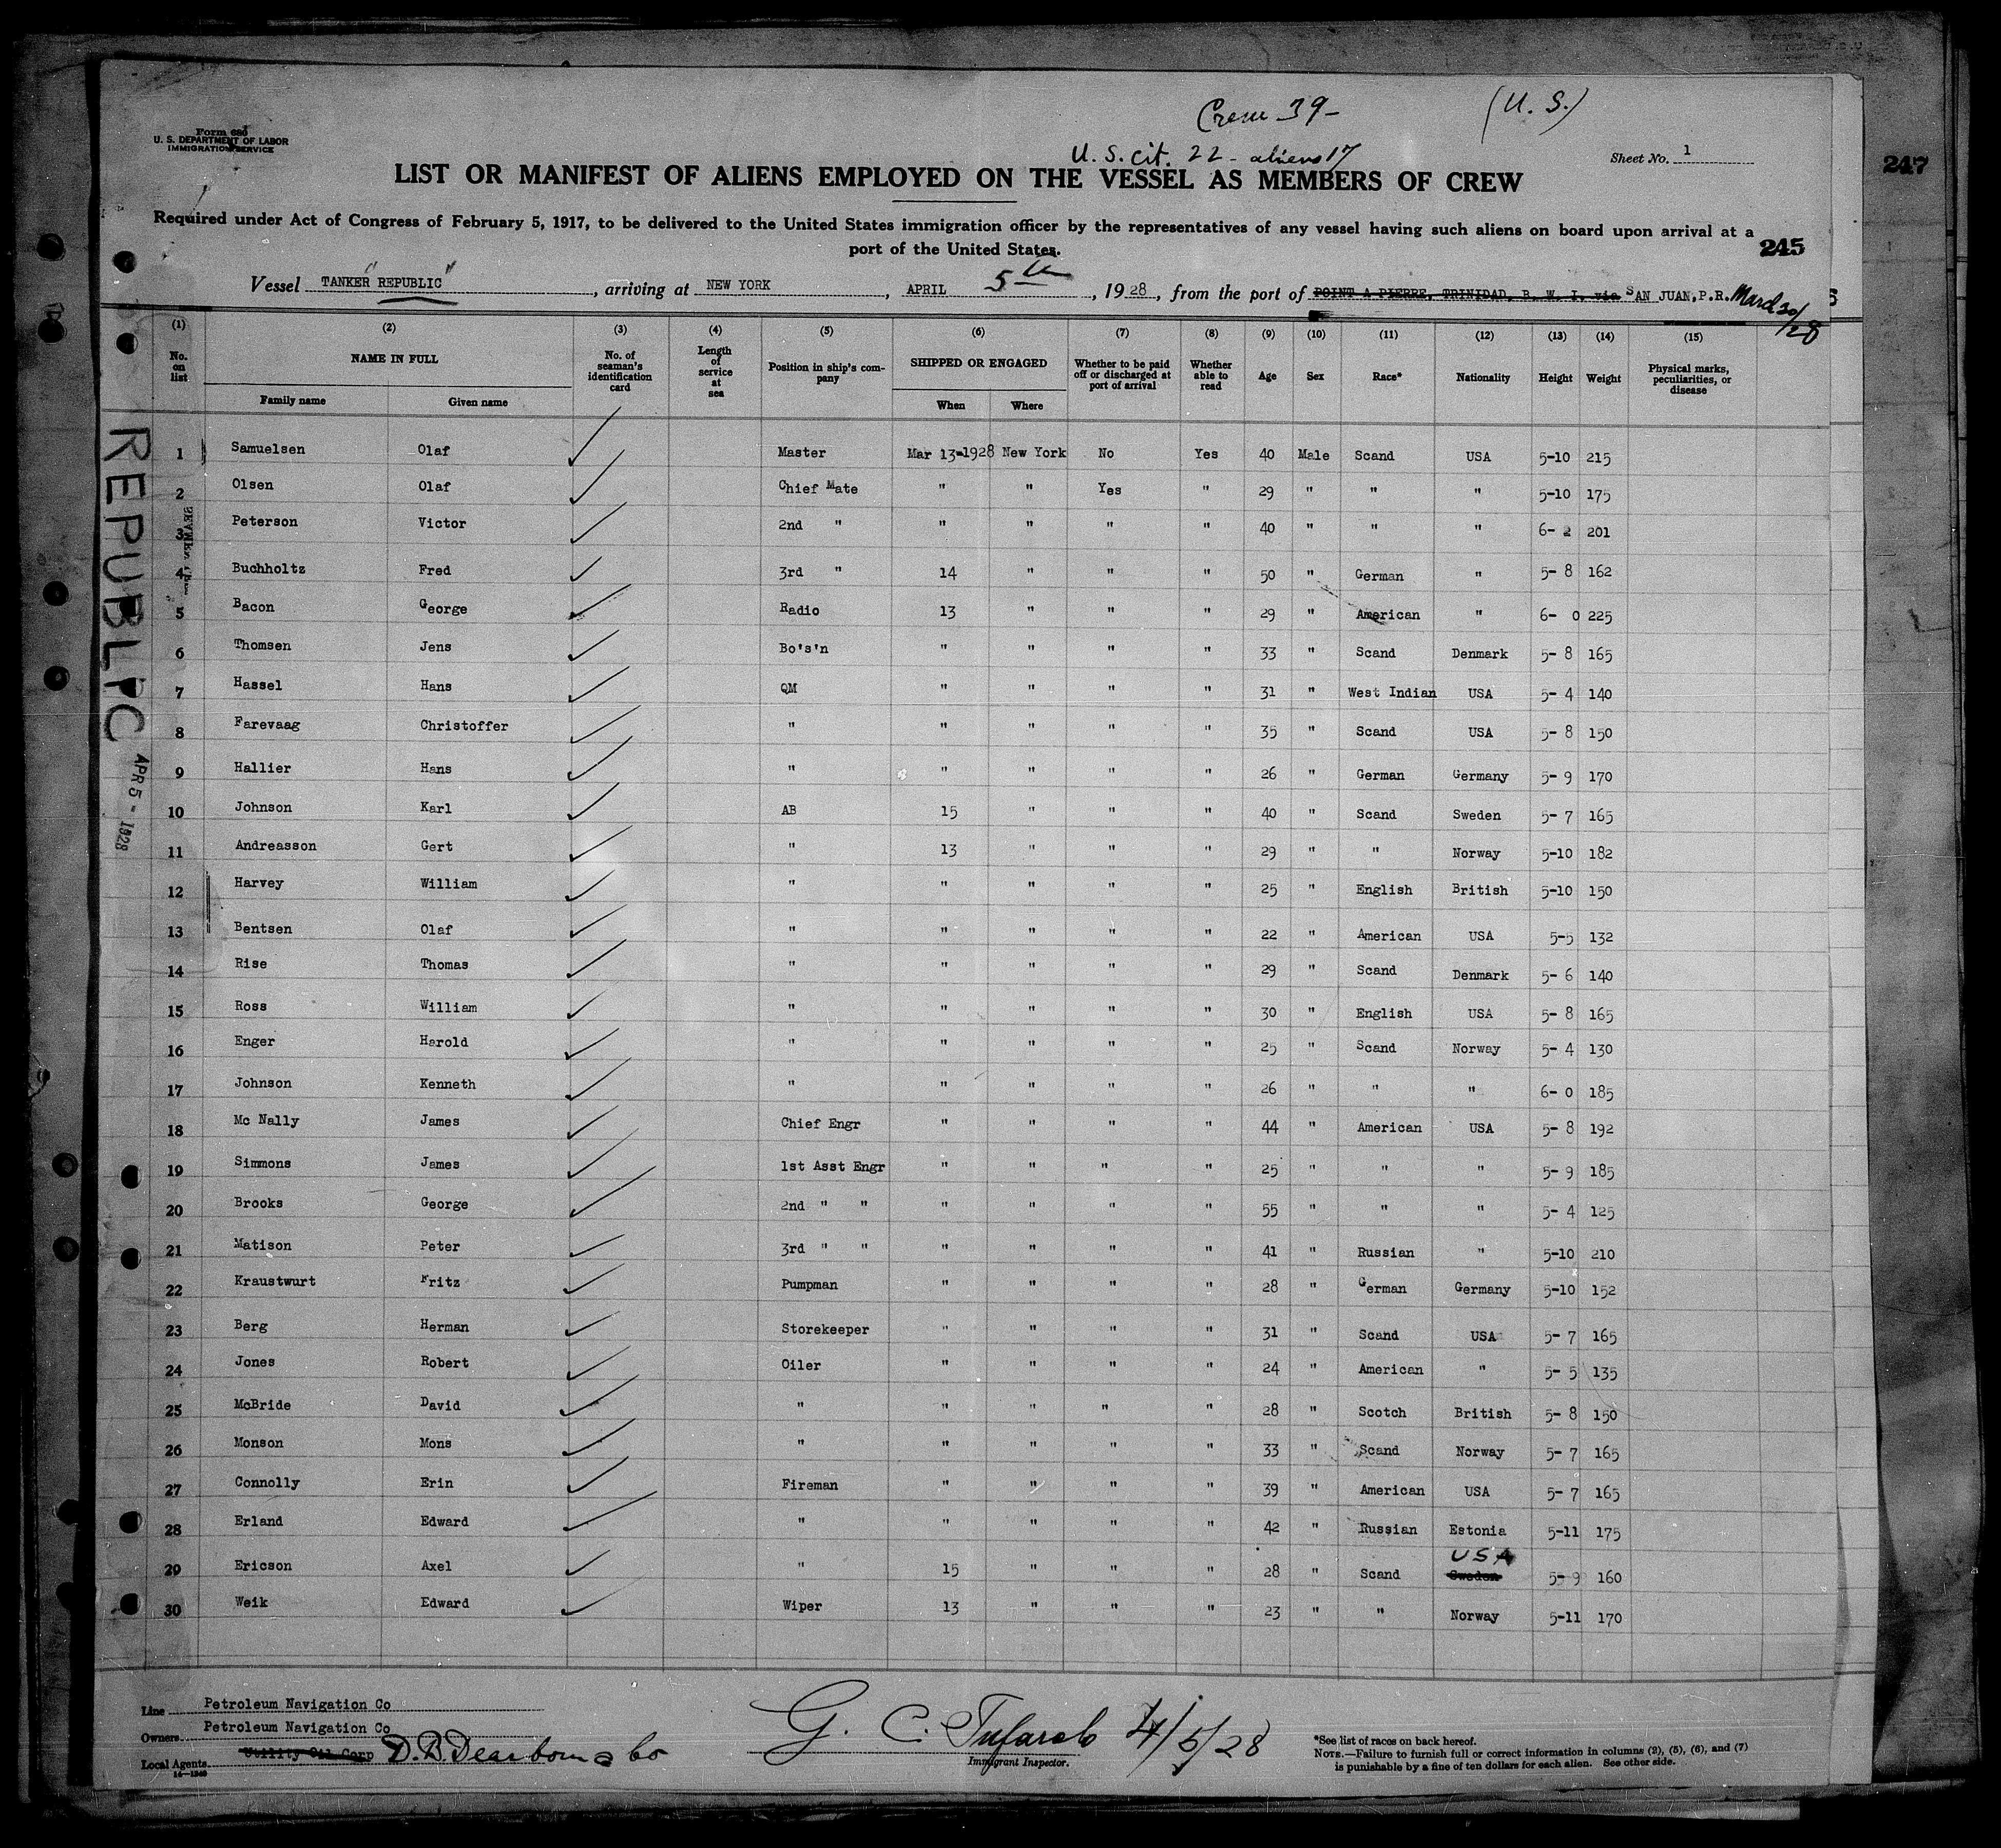 Crew 39-
(U. S.)
Form 680
U. S. DEPARTMENT OF LABOR
IMMIGRATION SERVICE
U. S. cit. 22 - aliens 17
Sheet No. 1
247
LIST OR MANIFEST OF ALIENS EMPLOYED ON THE VESSEL AS MEMBERS OF CREW
Required under Act of Congress of February 5, 1917, to be delivered to the United States immigration officer by the representatives of any vessel having such aliens on board upon arrival at a
port of the United States.
245
Vessel TANKER "REPUBLIC", arriving at NEW YORK, APRIL 5th, 1928, from the port of POINT A PIERRE, TRINIDAD, B. W. I. via SAN JUAN, P.R. March 30/28
(1) (2) (3) (4) (5) (6) (7) (8) (9) (10) (11) (12) (13) (14) (15)
No. on list NAME IN FULL Family name Given name No. of seaman's identification card Length of service at sea Position in ship's company SHIPPED OR ENGAGED When Where Whether to be paid off or discharged at port of arrival Whether able to read Age Sex Race* Nationality Height Weight Physical marks, peculiarities, or disease
1 Samuelsen Olaf Master Mar 13-1928 New York No Yes 40 Male Scand USA 5-10 215
2 Olsen Olaf Chief Mate " " Yes " 29 " " " 5-10 175
3 Peterson Victor 2nd " " " " " 40 " " " 6-2 201
4 Buchholtz Fred 3rd " 14 " " " 50 " German " 5-8 162
5 Bacon George Radio 13 " " " 29 " American " 6-0 225
6 Thomsen Jens Bo's'n " " " " 33 " Scand Denmark 5-8 165
7 Hassel Hans QM " " " " 31 " West Indian USA 5-4 140
8 Farevaag Christoffer " " " " " 35 " Scand USA 5-8 150
9 Hallier Hans " " " " " 26 " German Germany 5-9 170
10 Johnson Karl AB 15 " " " 40 " Scand Sweden 5-7 165
11 Andreasson Gert " 13 " " " 29 " " Norway 5-10 182
12 Harvey William " " " " " 25 " English British 5-10 150
13 Bentsen Olaf " " " " " 22 " American USA 5-5 132
14 Rise Thomas " " " " " 29 " Scand Denmark 5-6 140
15 Ross William " " " " " 30 " English USA 5-8 165
16 Enger Harold " " " " " 25 " Scand Norway 5-4 130
17 Johnson Kenneth " " " " " 26 " " " 6-0 185
18 Mc Nally James Chief Engr " " " " 44 " American USA 5-8 192
19 Simmons James 1st Asst Engr " " " " 25 " " " 5-9 185
20 Brooks George 2nd " " " " " " 55 " " " 5-4 125
21 Matison Peter 3rd " " " " " " 41 " Russian " 5-10 210
22 Kraustwurt Fritz Pumpman " " " " 28 " German Germany 5-10 152
23 Berg Herman Storekeeper " " " " 31 " Scand USA 5-7 165
24 Jones Robert Oiler " " " " 24 " American " 5-5 135
25 McBride David " " " " " 28 " Scotch British 5-8 150
26 Monson Mons " " " " " 33 " Scand Norway 5-7 165
27 Connolly Erin Fireman " " " " 39 " American USA 5-7 165
28 Erland Edward " " " " " 42 " Russian Estonia 5-11 175
29 Ericson Axel " 15 " " " 28 " Scand Sweden USA 5-9 160
30 Weik Edward Wiper 13 " " " 23 " " Norway 5-11 170
REPUBLIC APR 5 - 1928
Line Petroleum Navigation Co
Owners Petroleum Navigation Co
Local Agents Utility Oil Corp D. B. Dearborn & Co
14-1240
G. C. Tufarolo 4/5/28
Immigrant Inspector.
*See list of races on back hereof.
NOTE.—Failure to furnish full or correct information in columns (2), (5), (6), and (7)
is punishable by a fine of ten dollars for each alien. See other side.